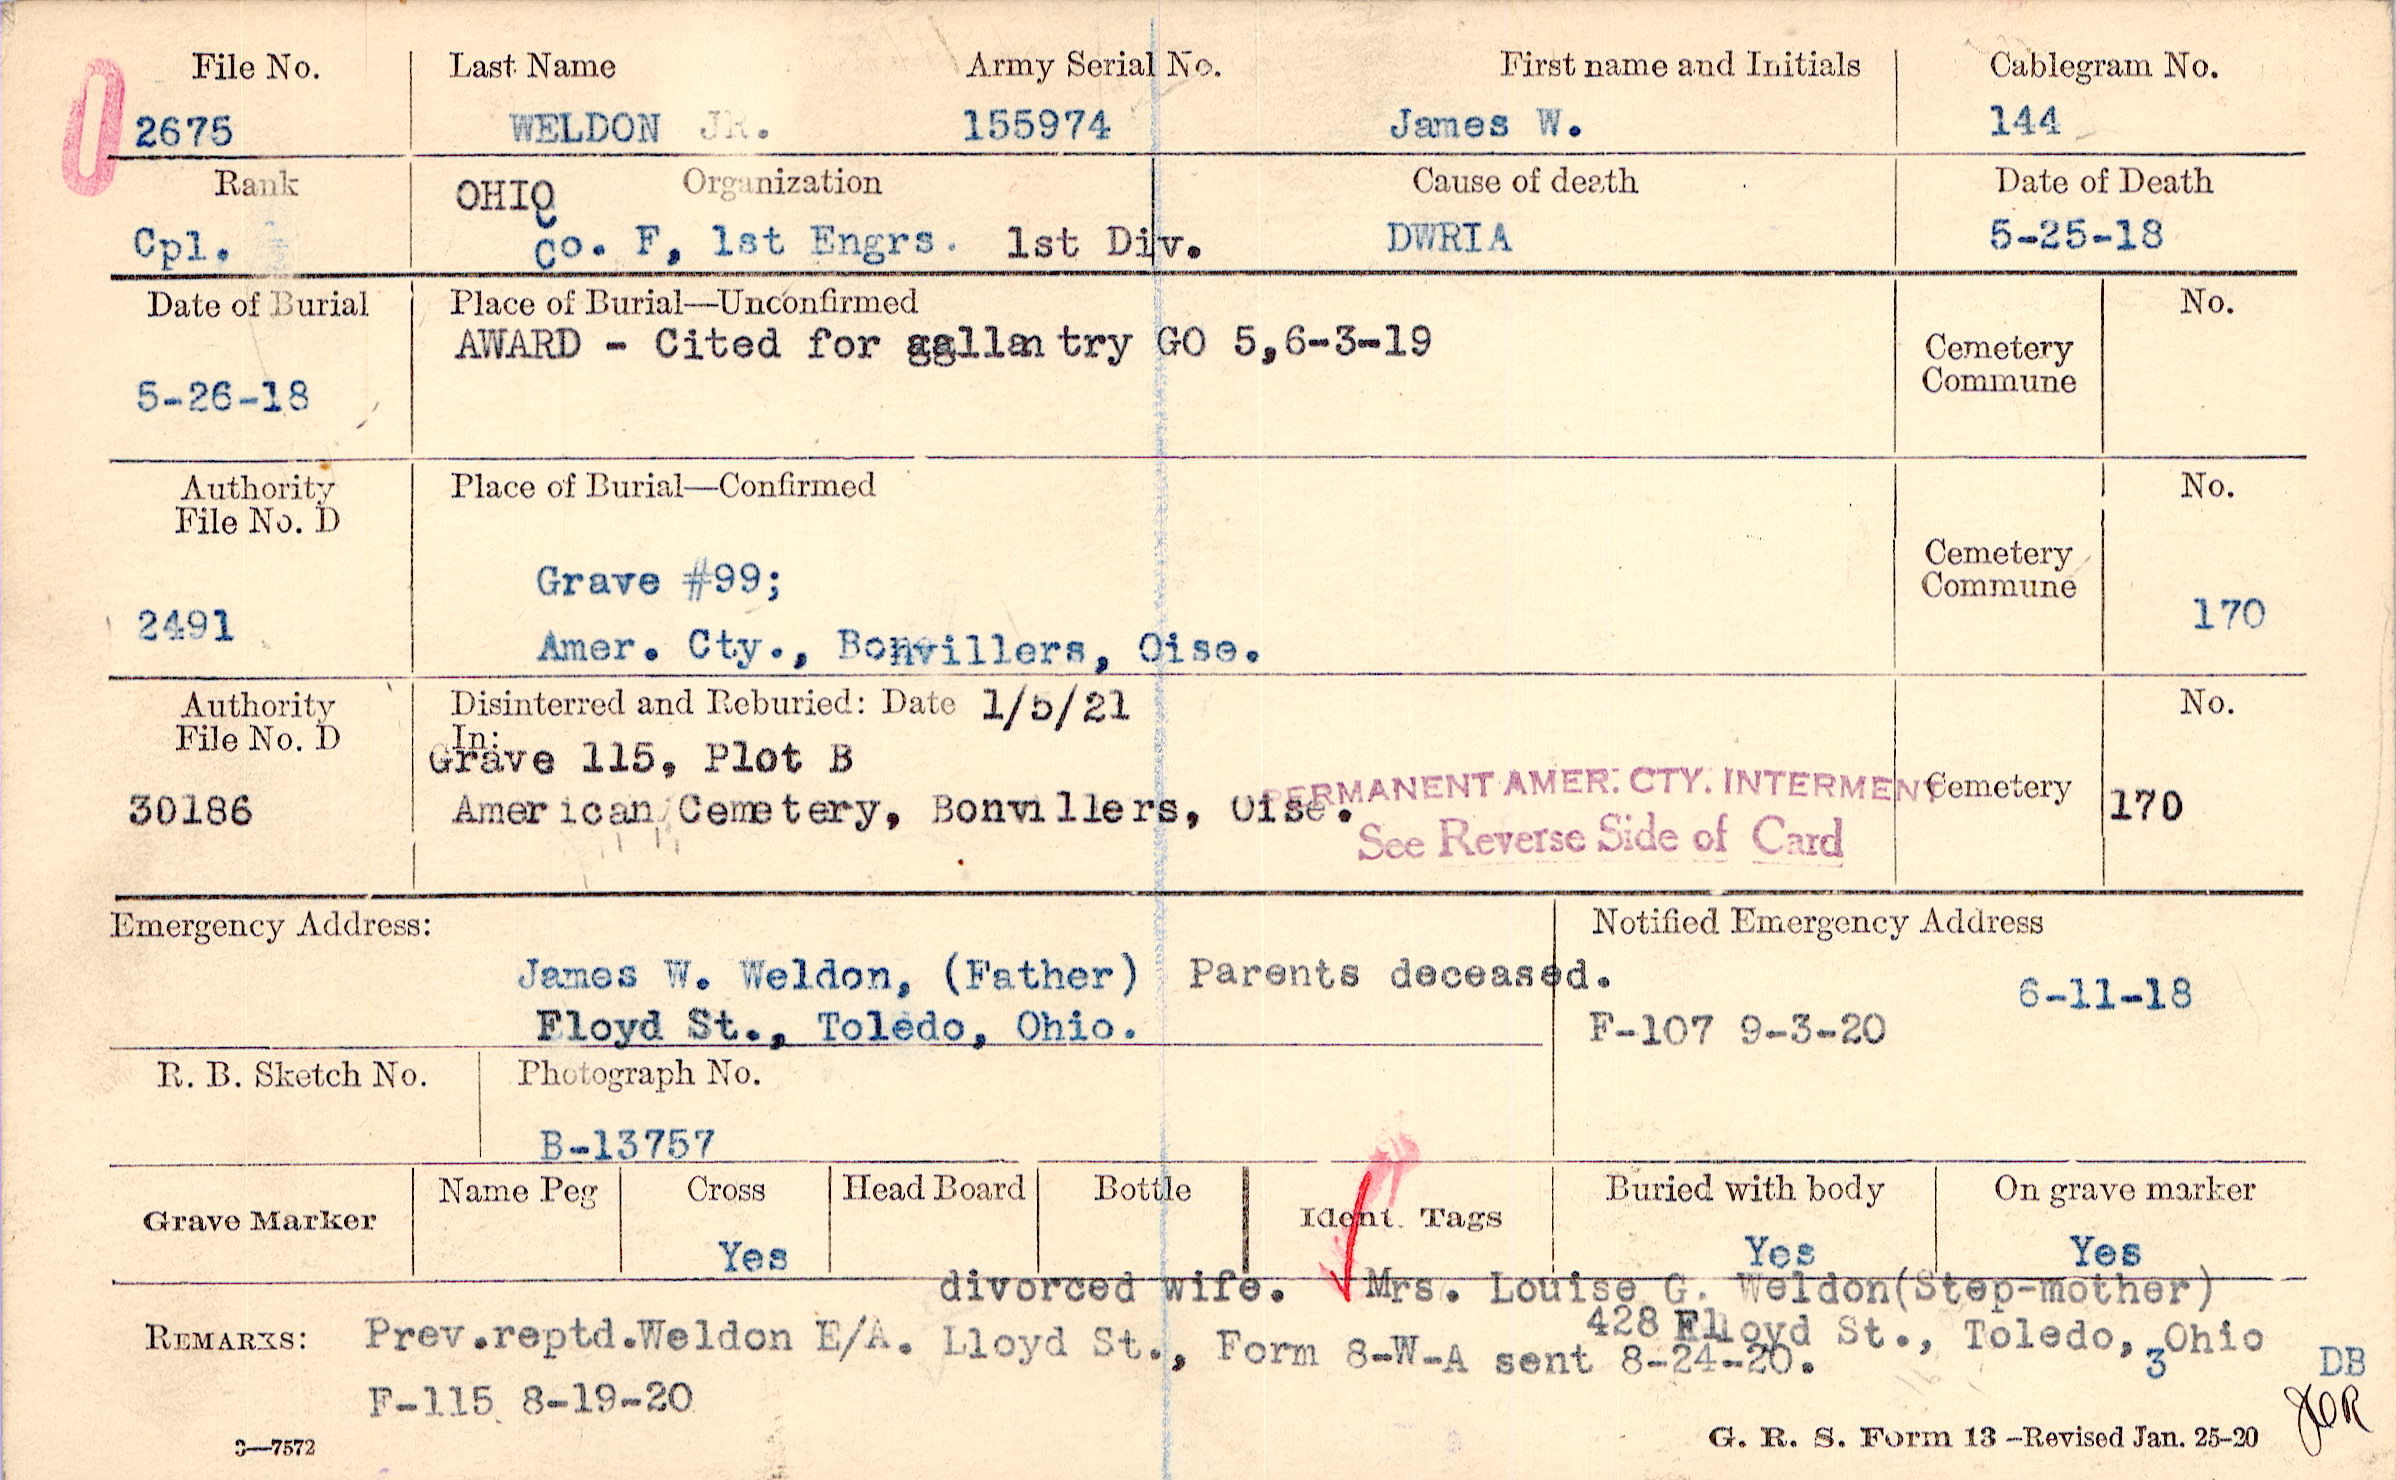 File No. Last Name Army Serial No. First name and Initials Cablegram No.
2675 WELDON JR. 155974 James W. 144
Rank OHIO Organization Cause of death Date of Death
Cpl. Co. F, 1st Engrs. 1st Div. DWRIA 5-25-18
Date of Burial Place of Burial—Unconfirmed No.
AWARD - Cited for gallantry GO 5,6-3-19 Cemetery
Commune
5-26-18
Authority Place of Burial—Confirmed No.
File No. D
Cemetery
Grave #99; Commune
2491 170
Amer. Cty., Bonvillers, Oise.
Authority Disinterred and Reburied: Date 1/5/21 No.
File No. D In:
Grave 115, Plot B
PERMANENT AMER. CTY. INTERMENT Cemetery
30186 American Cemetery, Bonvillers, Oise. 170
See Reverse Side of Card
Emergency Address: Notified Emergency Address
James W. Weldon, (Father) Parents deceased. 6-11-18
Floyd St., Toledo, Ohio. F-107 9-3-20
R. B. Sketch No. Photograph No.
B-13757
Name Peg Cross Head Board Bottle Buried with body On grave marker
Grave Marker Ident. Tags
Yes Yes Yes
divorced wife. Mrs. Louise G. Weldon(Step-mother)
428 Floyd St., Toledo, Ohio
REMARKS: Prev.reptd.Weldon E/A. Lloyd St., Form 8-W-A sent 8-24-20. 3 DB
F-115 8-19-20 JOR
3—7572 G. R. S. Form 13 -Revised Jan. 25-20